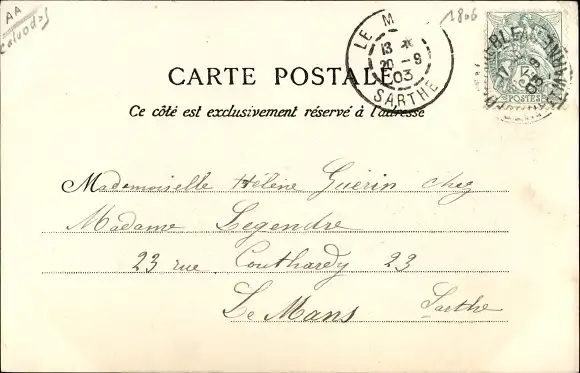 AA
Calvados
1806
LE M
13 *
20 -9
03
SARTHE
5
POSTES
CARTE POSTALE
Ce côté est exclusivement réservé à l'adresse
Mademoiselle Hélène Guérin chez
Madame Legendre
23 rue Couthardy 23
Le Mans Sarthe